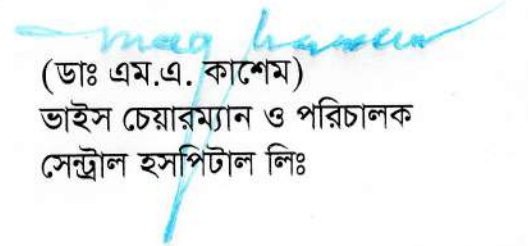 (ডাঃ এম.এ. কাশেম)
ভাইস চেয়ারম্যান ও পরিচালক
সেন্ট্রাল হসপিটাল লিঃ